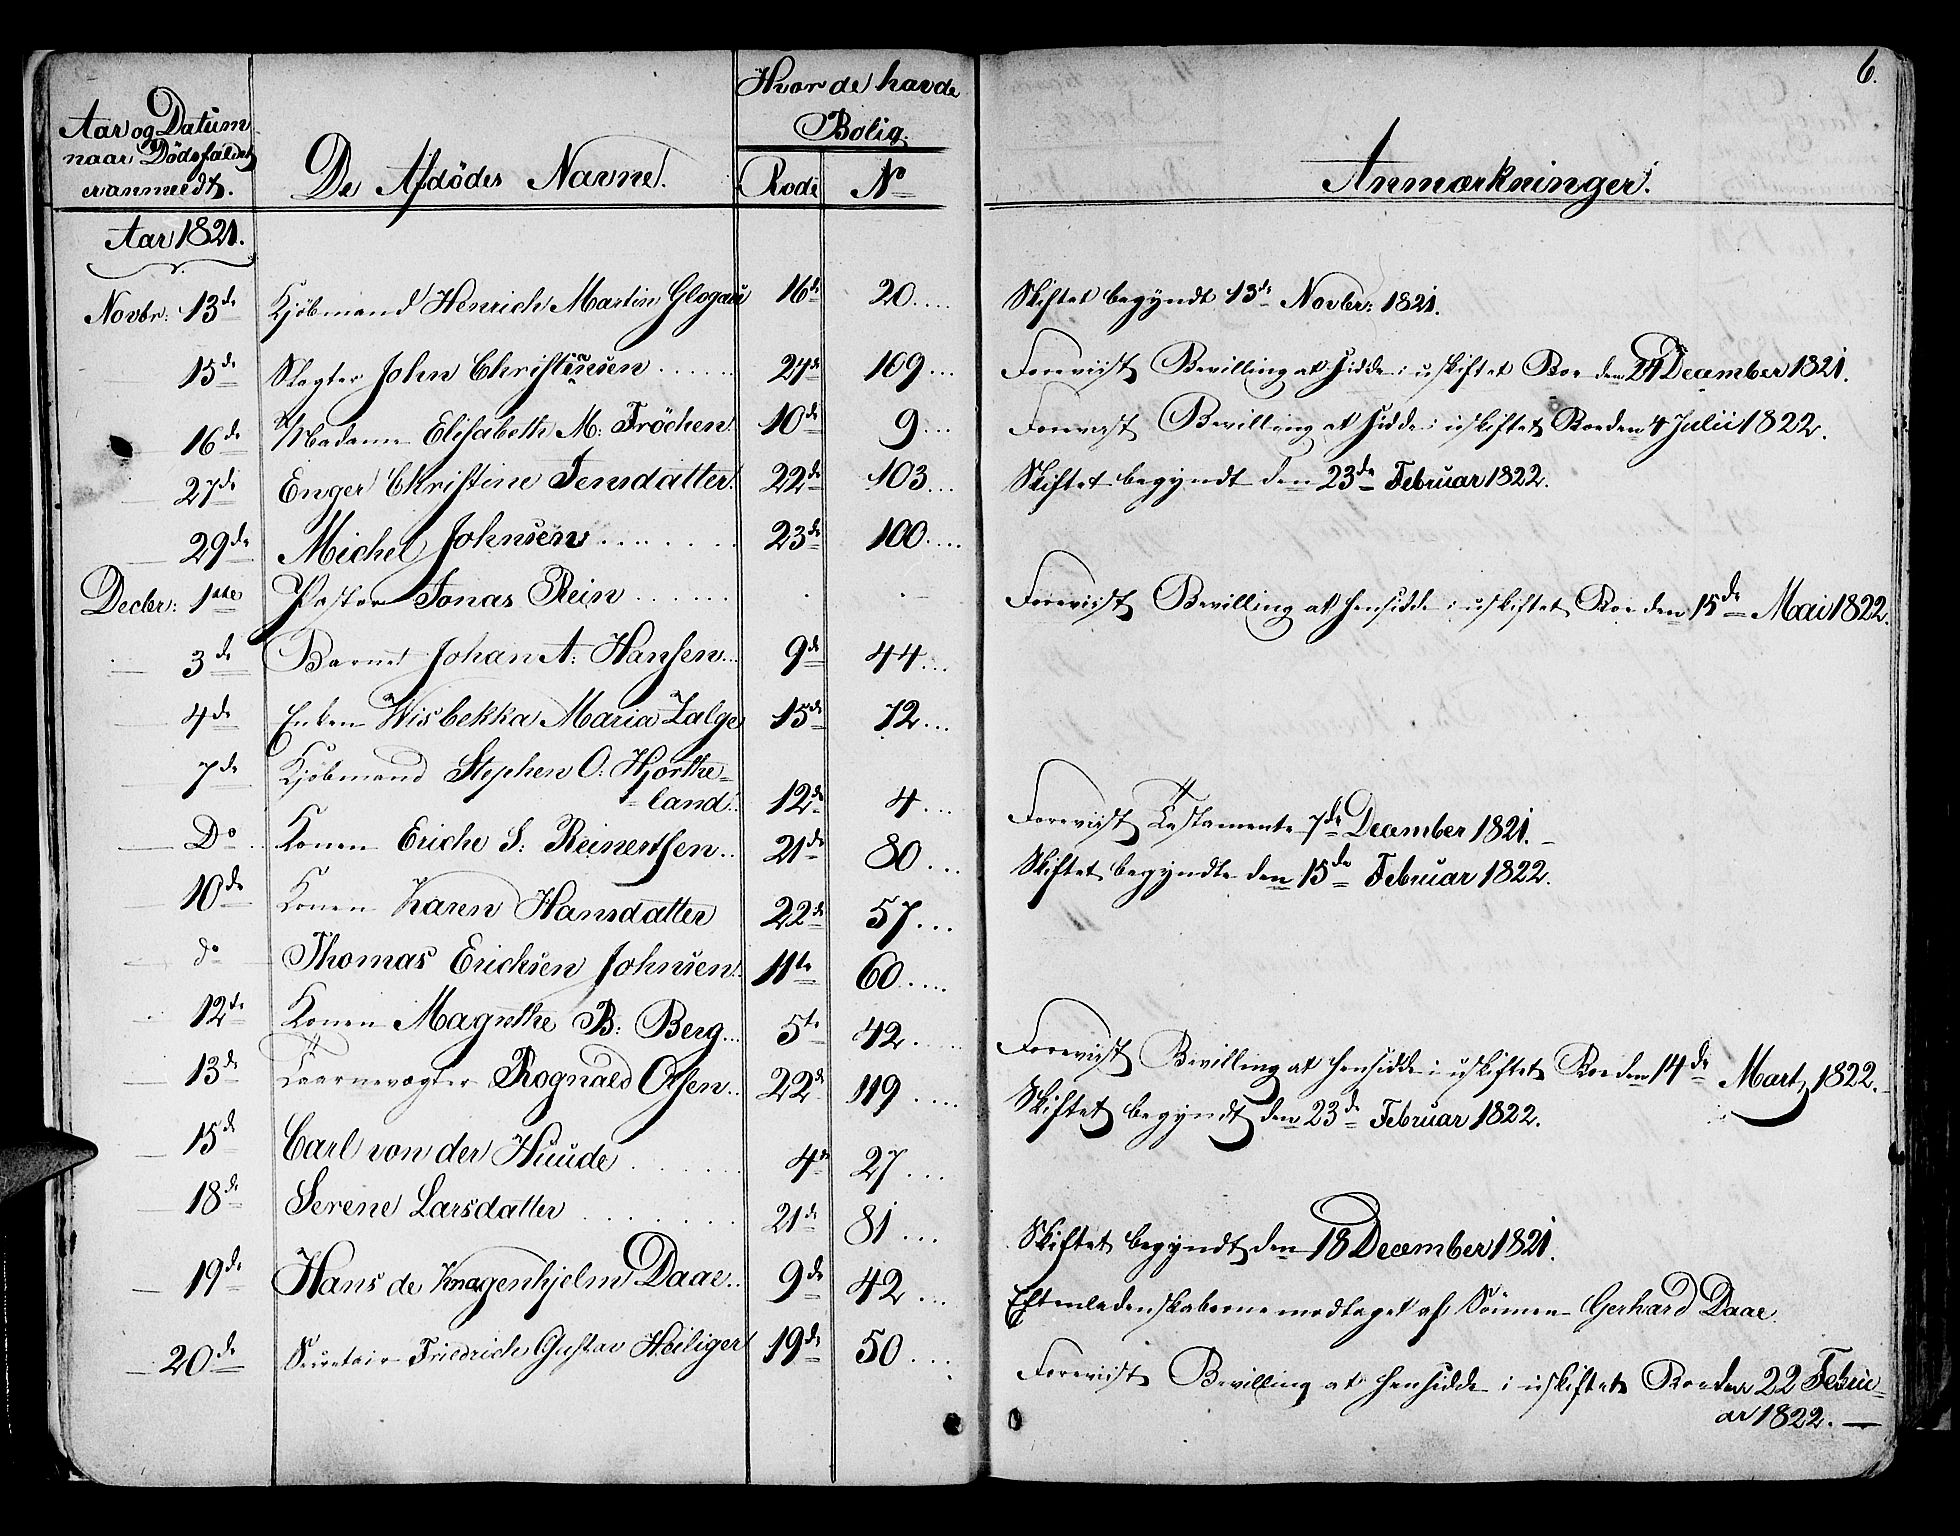 6.
Aar og Datum
naar Dødsfaldet
er anmeldt.
De Afdødes Navne.
Hvor de havde
Bolig.
Rode No
Anmærkninger.
Aar 1821.
Novbr: 13de Kjöbmand Henrich Martin Glogau 16de 20.... Skiftet begyndt 13de Novbr: 1821.
15de Slagter John Christensen ...... 24de 109... Foreviist Bevilling at sidde i uskiftet Boe den 24 December 1821.
16de Madame Elisabeth M: Fröchen 10de 9... Foreviist Bevilling at sidde i uskiftet Boe den 4 Julii 1822.
27de Enger Christine Jensdatter. 22de 103... Skiftet begyndt den 23de Februar 1822.
29de Michel Johnsen ........ 23de 100....
Decbr: 1ste Pastor Jonas Rein ...... Foreviist Bevilling at hensidde i uskiftet Boe den 15de Mai 1822.
3de Barnet Johan A: Hansen... 9de 44...
4de Enken Wisbekka Maria Zalge 15de 72...
7de Kjöbmand Stephen O: Hjorthe=
=land.. 12de 4... Foreviist Testamente 7de December 1821.
Do Konen Eriche S: Reinertsen.. 21de 80... Skiftet begyndte den 15de Februar 1822.
10de Konen Karen Hansdatter 22de 57...
do Thomas Ericksen Johnsen. 11te 60.....
12te Konen Magrethe B: Berg... 5te 42..... Foreviist Bevilling at hensidde i uskiftet Boe den 14de Marts 1822.
13de Taarnevægter Rognald Olsen.. 22de 119.... Skiftet begyndt den 23de Februar 1822.
15de Carl von der Huude ...... 4de 27....
18de Serene Larsdatter ........ 21de 81... Skiftet begyndt den 18 December 1821.
19de Hans de Knagenhjelm Daae.. 9de 42... Efterladenskaberne modtaget af Sönnen Gerhard Daae.
20de Secretair Friedrich Gustav Heiliger 19de 50.... Foreviist Bevilling at hensidde i uskiftet Boe den 22 Febru=
ar 1822.